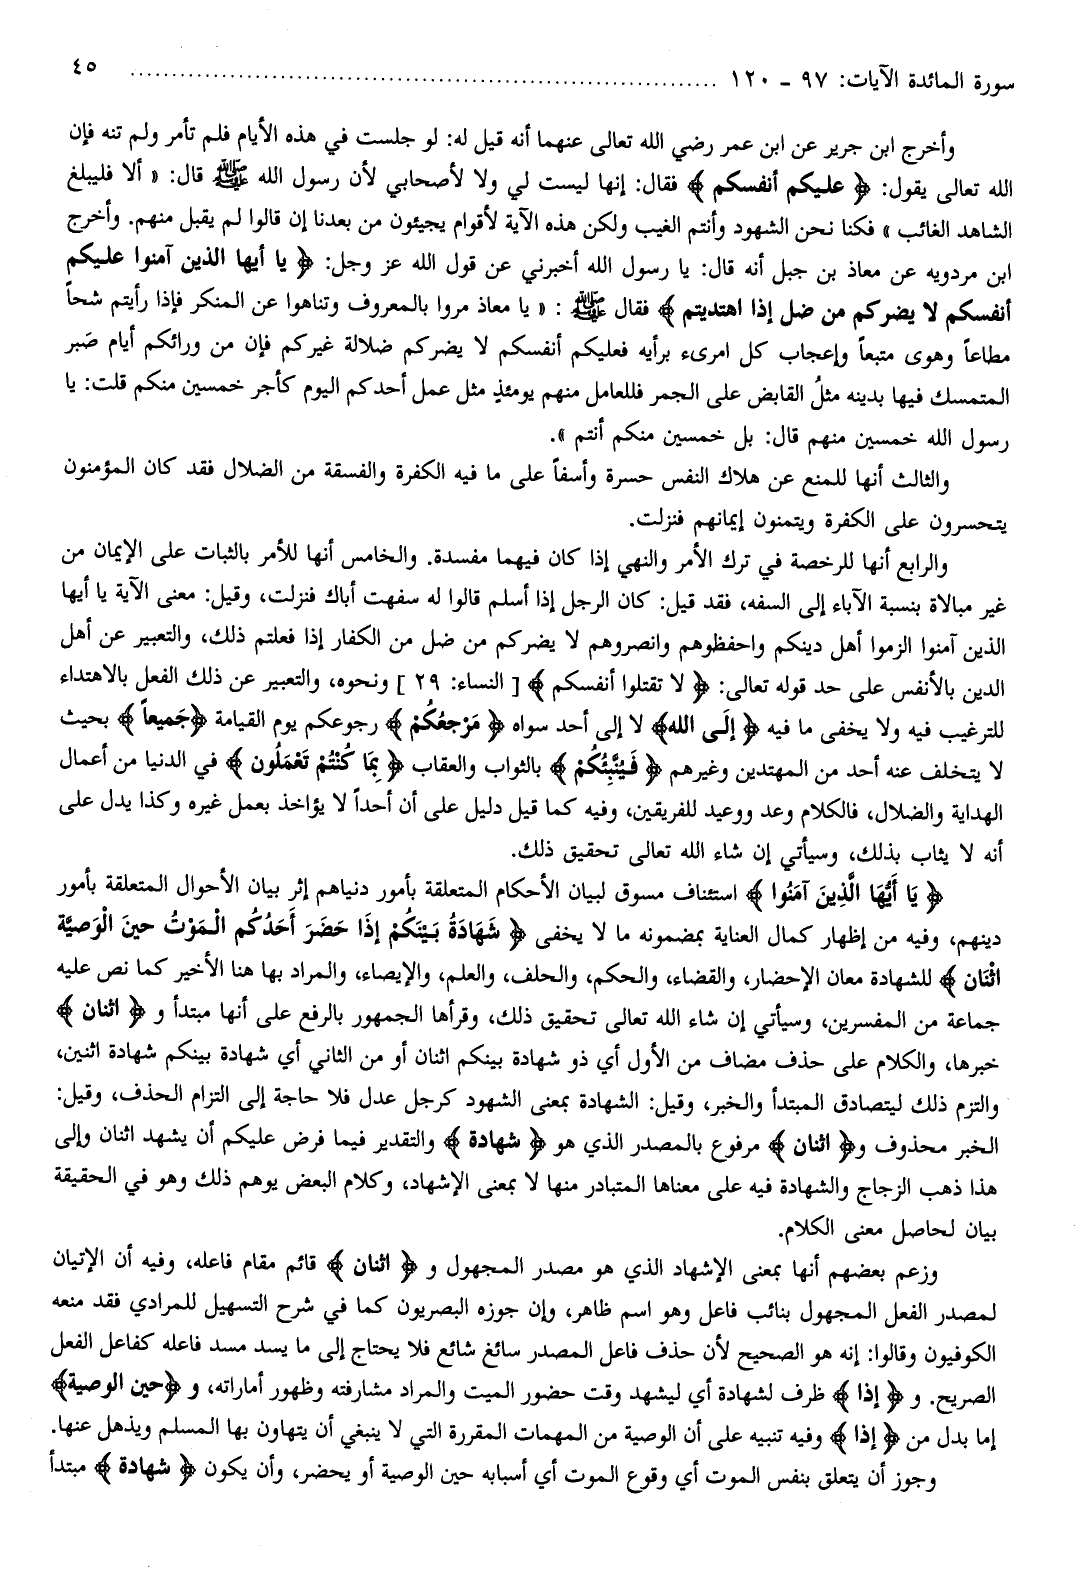 سورة المائدة الآيات: ٩٧ - ١٢٠ ........................................................................ ٤٥
وأخرج ابن جرير عن ابن عمر رضي الله تعالى عنهما أنه قيل له: لو جلست في هذه الأيام فلم تأمر ولم تنه فإن
الله تعالى يقول: ﴿ عليكم أنفسكم ﴾ فقال: إنها ليست لي ولا لأصحابي لأن رسول الله ﷺ قال: « ألا فليبلغ
الشاهد الغائب » فكنا نحن الشهود وأنتم الغيب ولكن هذه الآية لأقوام يجيئون من بعدنا إن قالوا لم يقبل منهم. وأخرج
ابن مردويه عن معاذ بن جبل أنه قال: يا رسول الله أخبرني عن قول الله عز وجل: ﴿ يا أيها الذين آمنوا عليكم
أنفسكم لا يضركم من ضل إذا اهتديتم ﴾ فقال ﷺ : « يا معاذ مروا بالمعروف وتناهوا عن المنكر فإذا رأيتم شحاً
مطاعاً وهوى متبعاً وإعجاب كل امرىء برأيه فعليكم أنفسكم لا يضركم ضلالة غيركم فإن من ورائكم أيام صَبر
المتمسك فيها بدينه مثلُ القابض على الجمر فللعامل منهم يومئذٍ مثل عمل أحدكم اليوم كأجر خمسين منكم قلت: يا
رسول الله خمسين منهم قال: بل خمسين منكم أنتم ».
والثالث أنها للمنع عن هلاك النفس حسرة وأسفاً على ما فيه الكفرة والفسقة من الضلال فقد كان المؤمنون
يتحسرون على الكفرة ويتمنون إيمانهم فنزلت.
والرابع أنها للرخصة في ترك الأمر والنهي إذا كان فيهما مفسدة. والخامس أنها للأمر بالثبات على الإيمان من
غير مبالاة بنسبة الآباء إلى السفه، فقد قيل: كان الرجل إذا أسلم قالوا له سفهت أباك فنزلت، وقيل: معنى الآية يا أيها
الذين آمنوا الزموا أهل دينكم واحفظوهم وانصروهم لا يضركم من ضل من الكفار إذا فعلتم ذلك، والتعبير عن أهل
الدين بالأنفس على حد قوله تعالى: ﴿ لا تقتلوا أنفسكم ﴾ [ النساء: ٢٩ ] ونحوه، والتعبير عن ذلك الفعل بالاهتداء
للترغيب فيه ولا يخفى ما فيه ﴿ إلَى الله﴾ لا إلى أحد سواه ﴿ مَرْجعُكُمْ ﴾ رجوعكم يوم القيامة ﴿جَميعاً ﴾ بحيث
لا يتخلف عنه أحد من المهتدين وغيرهم ﴿ فَيُنَبِّئُكُمْ ﴾ بالثواب والعقاب ﴿ بِمَا كُنْتُمْ تَعْمَلُون ﴾ في الدنيا من أعمال
الهداية والضلال، فالكلام وعد ووعيد للفريقين، وفيه كما قيل دليل على أن أحداً لا يؤاخذ بعمل غيره وكذا يدل على
أنه لا يثاب بذلك، وسيأتي إن شاء الله تعالى تحقيق ذلك.
﴿ يَا أَيُّهَا الَّذِينَ آمَنُوا ﴾ استئناف مسوق لبيان الأحكام المتعلقة بأمور دنياهم إثر بيان الأحوال المتعلقة بأمور
دينهم، وفيه من إظهار كمال العناية بمضمونه ما لا يخفى ﴿ شَهَادَةُ بَيْنَكُمْ إذَا حَضَرَ أَحَدُكُم الْمَوْتُ حينَ الْوَصيَّة
اثْنَان ﴾ للشهادة معان الإحضار، والقضاء، والحكم، والحلف، والعلم، والإيصاء، والمراد بها هنا الأخير كما نص عليه
جماعة من المفسرين، وسيأتي إن شاء الله تعالى تحقيق ذلك، وقرأها الجمهور بالرفع على أنها مبتدأ و ﴿ اثنان ﴾
خبرها، والكلام على حذف مضاف من الأول أي ذو شهادة بينكم اثنان أو من الثاني أي شهادة بينكم شهادة اثنين،
والتزم ذلك ليتصادق المبتدأ والخبر، وقيل: الشهادة بمعنى الشهود كرجل عدل فلا حاجة إلى التزام الحذف، وقيل:
الخبر محذوف و﴿ اثنان ﴾ مرفوع بالمصدر الذي هو ﴿ شهادة ﴾ والتقدير فيما فرض عليكم أن يشهد اثنان وإلى
هذا ذهب الزجاج والشهادة فيه على معناها المتبادر منها لا بمعنى الإشهاد، وكلام البعض يوهم ذلك وهو في الحقيقة
بيان لحاصل معنى الكلام.
وزعم بعضهم أنها بمعنى الإشهاد الذي هو مصدر المجهول و ﴿ اثنان ﴾ قائم مقام فاعله، وفيه أن الإتيان
لمصدر الفعل المجهول بنائب فاعل وهو اسم ظاهر، وإن جوزه البصريون كما في شرح التسهيل للمرادي فقد منعه
الكوفيون وقالوا: إنه هو الصحيح لأن حذف فاعل المصدر سائغ شائع فلا يحتاج إلى ما يسد مسد فاعله كفاعل الفعل
الصريح. و ﴿ إذا ﴾ ظرف لشهادة أي ليشهد وقت حضور الميت والمراد مشارفته وظهور أماراته، و ﴿حين الوصية﴾
إما بدل من ﴿ إذا ﴾ وفيه تنبيه على أن الوصية من المهمات المقررة التي لا ينبغي أن يتهاون بها المسلم ويذهل عنها.
وجوز أن يتعلق بنفس الموت أي وقوع الموت أي أسبابه حين الوصية أو يحضر، وأن يكون ﴿ شهادة ﴾ مبتدأ